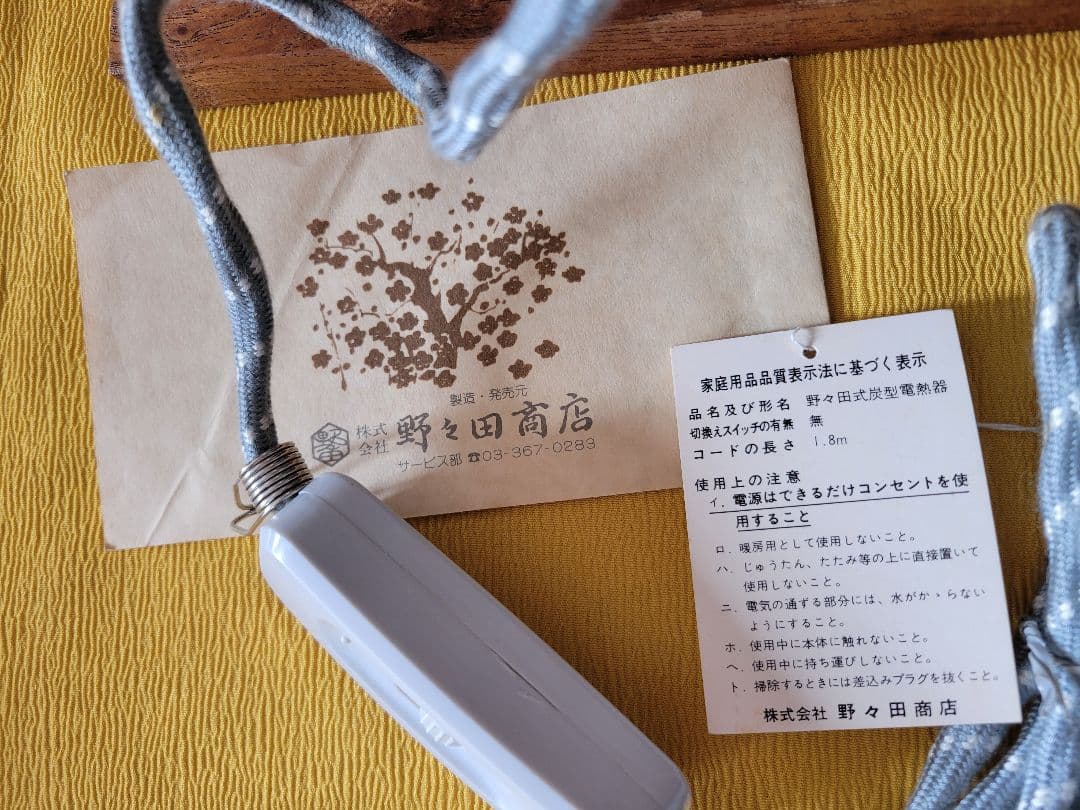 製造・発売元
株式会社 野々田商店
サービス部 ☎03-367-0283
家庭用品品質表示法に基づく表示
品名及び形名 野々田式炭型電熱器
切換えスイッチの有無 無
コードの長さ 1.8m
使用上の注意
イ. 電源はできるだけコンセントを使
用すること
ロ. 暖房用として使用しないこと。
ハ. じゅうたん、たたみ等の上に直接置いて
使用しないこと。
ニ. 電気の通ずる部分には、水がかゝらない
ようにすること。
ホ. 使用中に本体に触れないこと。
ヘ. 使用中に持ち運びしないこと。
ト. 掃除するときには差込みプラグを抜くこと。
株式会社 野々田商店